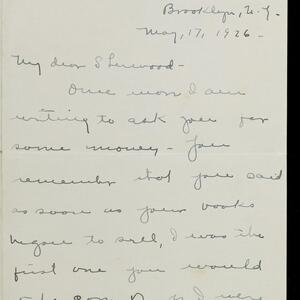 Brooklyn, N.Y.
May, 17, 1926 -
My dear Sherwood -
Once more I am
writing to ask you for
some money - You
remember that you said
as soon as your books
begane to sell, I was the
first one you would